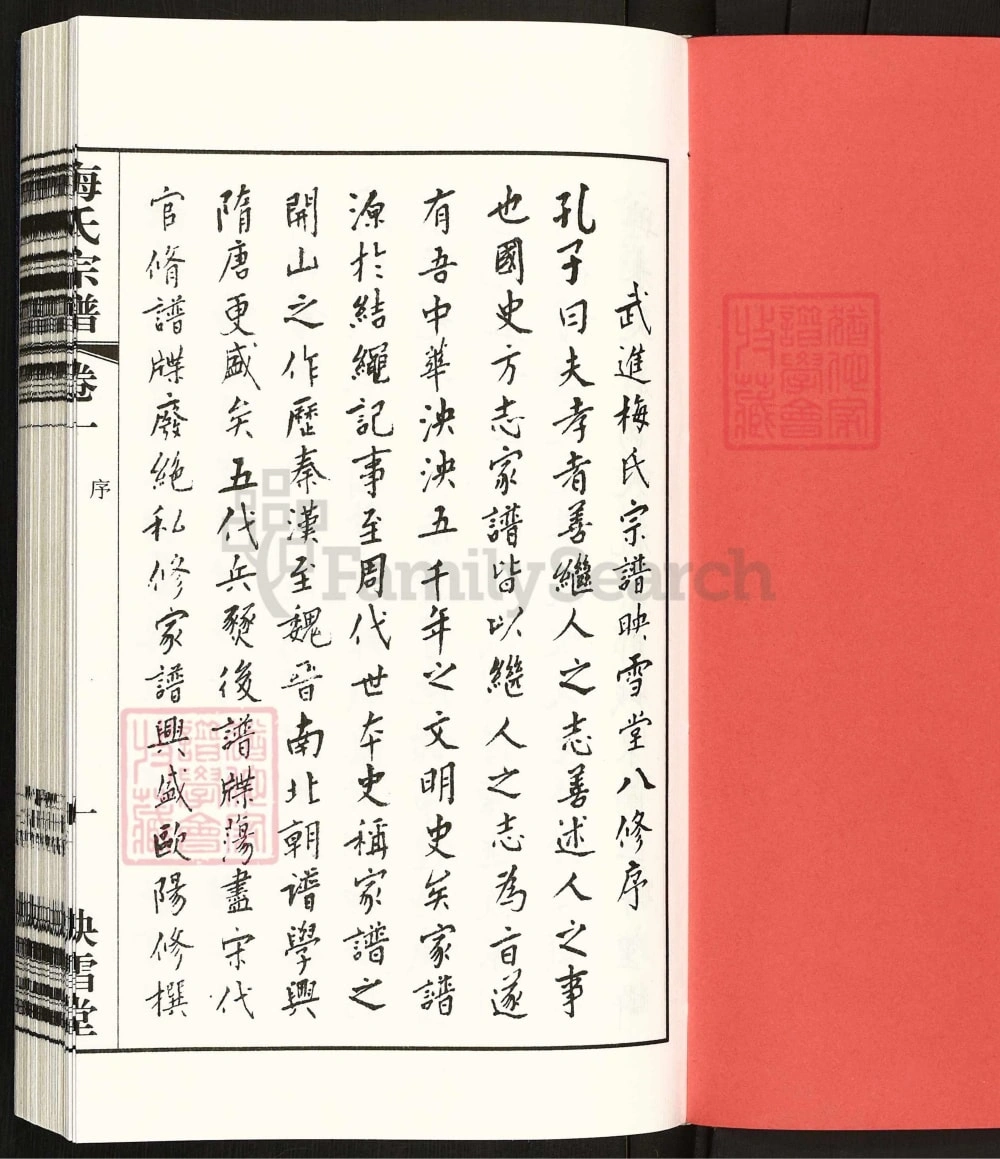 武進梅氏宗譜映雪堂八修序
孔子曰夫孝者善繼人之志善述人之事
也國史方志家譜皆以繼人之志為旨遂
有吾中華泱泱五千年之文明史矣家譜
源於結繩記事至周代世本史稱家譜之
開山之作歷秦漢至魏晉南北朝譜學興
隋唐更盛矣五代兵燹後譜牒蕩盡宋代
官脩譜牒廢絶私修家譜興盛歐陽修撰
梅氏宗譜
卷一
序
一
映雪堂
FamilySearch